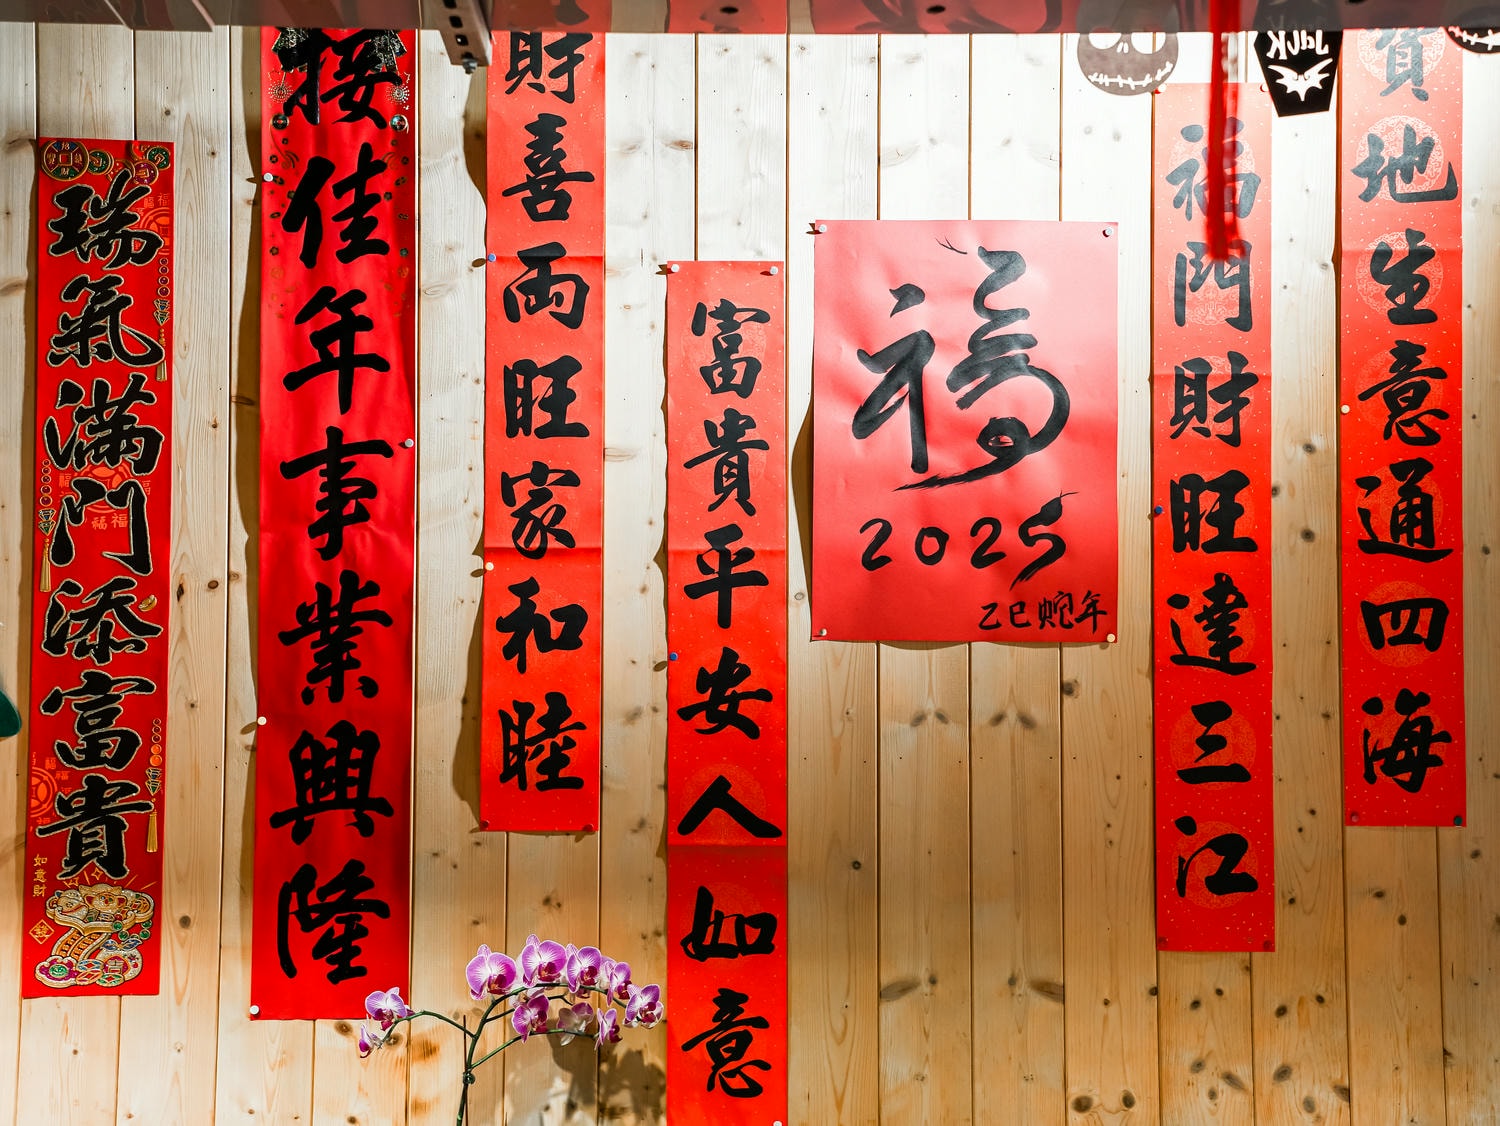 瑞氣滿門添富貴
如意財
接佳年事業興隆
財喜兩旺家和睦
富貴平安人如意
福
2025
乙巳蛇年
福門財旺達三江
寶地生意通四海
Jack